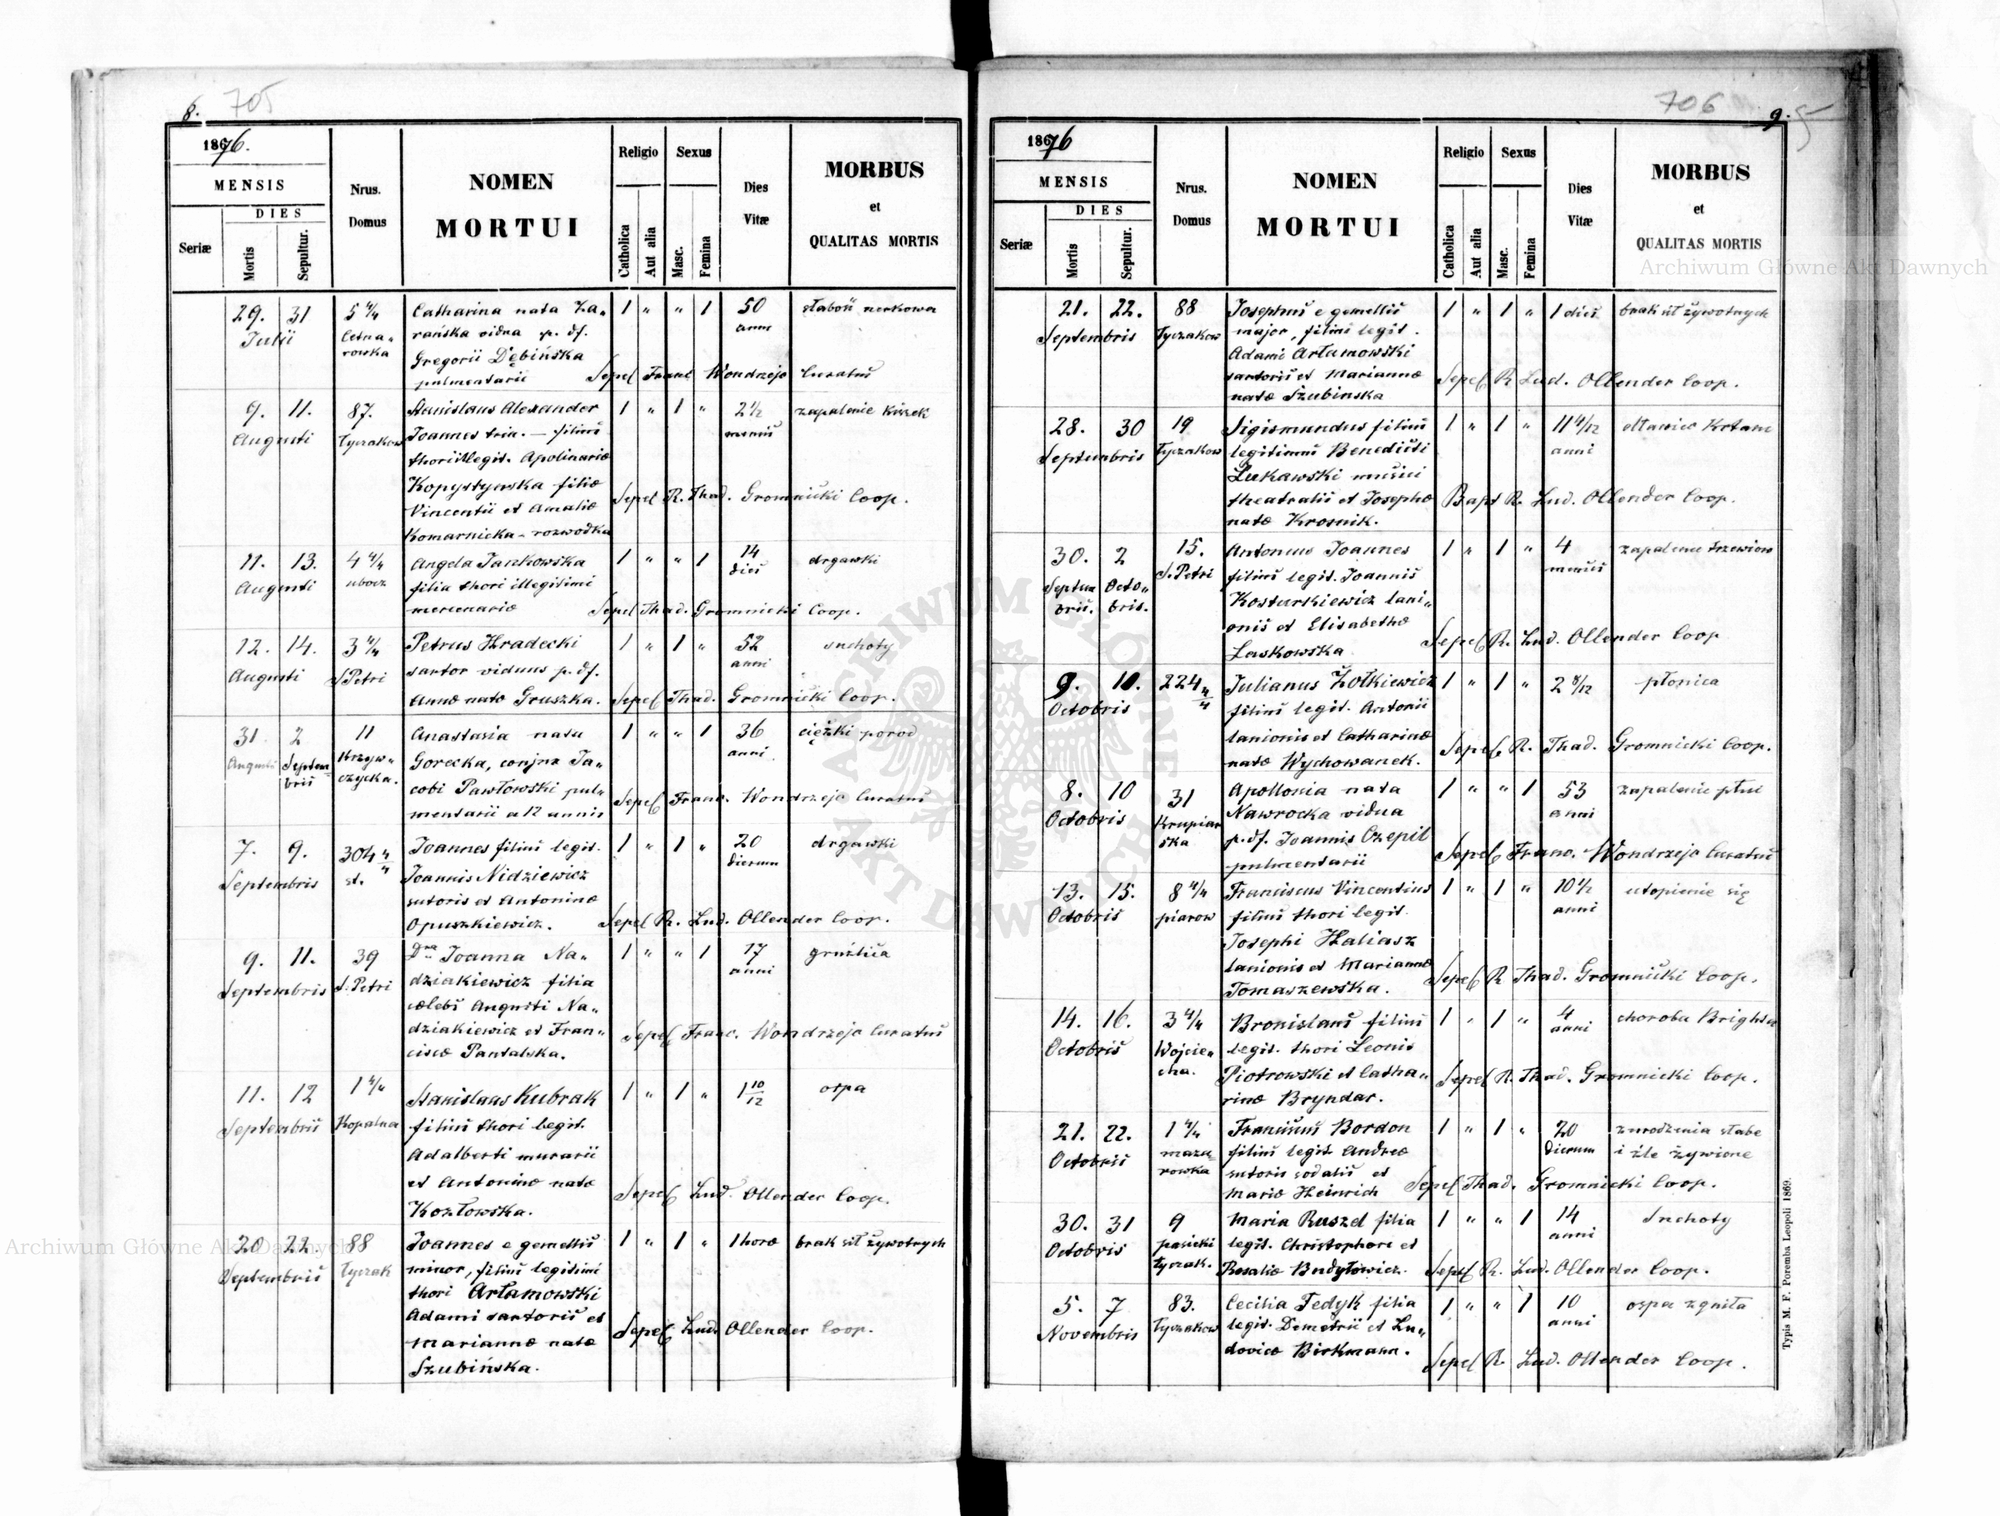 8. 705
1876.
MENSIS
DIES
Seriæ
Mortis
Sepultur.
Nrus.
Domus
NOMEN
MORTUI
Religio
Catholica
Aut alia
Sexus
Masc.
Femina
Dies
Vitæ
MORBUS
et
QUALITAS MORTIS
29. 31 5 4/4 Catharina nata Za„ 1 „ „ 1 50 słabość nerkowa
Julii Cetna„ rańska vidua p. df. anni
rowska Gregorii Dębińska
pulmentarii Sepel Franc Wondrzejc Curatus
9. 11. 87. Stanislaus Alexander 1 „ 1 „ 2 1/2 zapalenie kiszek
Augusti Łyczakow Joannes trin. — filius mensis
thori illegit. Apolinariæ
Kopystyńska filiæ Sepel R. Thad. Gromnicki Coop.
Vincentii et Amaliæ
Komarnicka - rozwodka
11. 13. 4 4/4 Angela Jankowska 1 „ „ 1 14 drgawki
Augusti ubocz filia thori illegitimi dies
mercenariæ Sepel Thad. Gromnicki Coop.
12. 14. 3 4/4 Petrus Hradecki 1 „ 1 „ 52 suchoty
Augusti S. Petri sartor viduus p. df. anni
Annæ natæ Gruszka. Sepel Thad. Gromnicki Coop.
31. 2 11 Anastasia nata 1 „ „ 1 36 ciężki porod
Augusti Septem„ Krzyw„ Gorecka, conjux Ja„ anni
bris czycka. cobi Pawłowski pul„
mentarii a 12 annis Sepel Franc. Wondrzejc Curatus
7. 9. 304 4/4 Joannes filius legit. 1 „ 1 „ 20 drgawki
Septembris st. Joannis Nidziewicz dierum
sutoris et Antoninæ
Opuszkiewicz. Sepel R. Lud. Ollender Coop.
9. 11. 39 Joanna Na„ 1 „ „ 1 17 gruźlica
Septembris S. Petri dziakiewicz filia anni
cælebs Augusti Na„
dziakiewicz et Fran„ Sepel Franc. Wondrzejc Curatus
ciscæ Pantalska.
11. 12 1 4/4 Stanislaus Kubrak 1 „ 1 „ 1 10/12 ospa
Septembris Kopalna filius thori legit.
Adalberti murarii
et Antoninæ natæ Sepel Lud. Ollender Coop.
Kozłowska.
20 22 88 Joannes e gemellis 1 „ 1 „ 1 horæ brak sił żywotnych
Septembris Łyczak minor, filius legitimi
thori Artamowski
Adami sartoris et Sepel Lud. Ollender Coop.
Mariannæ natæ
Szubińska.
706 9.
1876
MENSIS
DIES
Seriæ
Mortis
Sepultur.
Nrus.
Domus
NOMEN
MORTUI
Religio
Catholica
Aut alia
Sexus
Masc.
Femina
Dies
Vitæ
MORBUS
et
QUALITAS MORTIS
21. 22. 88 Josephus e gemellis 1 „ 1 „ 1 dies brak sił żywotnych
Septembris Łyczakow major, filius legit.
Adami Artamowski
sartoris et Mariannæ Sepel R Lud. Ollender Coop.
natæ Szubinska
28. 30 19 Sigismundus filius 1 „ 1 „ 11 4/12
Septembris Łyczakow legitimus Benedicti anni
Łukawski musici
theatralis et Josephæ Bapt R. Lud. Ollender Coop.
natæ Krosnik.
30. 2 15. Antonius Joannes 1 „ 1 „ 4 zapalenie trzewiow
Septem Octo„ S. Petri filius legit. Joannis mensis
bris. bris. Kosturkiewicz lani„
onis et Elisabethæ Sepel R. Lud. Ollender Coop
Laskowska
9. 10. 224 4/4 Julianus Żołkiewicz 1 „ 1 „ 2 8/12 płonica
Octobris filius legit. Antonii
lanionis et Catharinæ Sepel R. Thad. Gromnicki Coop.
natæ Wychowanek.
8. 10 31 Apollonia nata 1 „ „ 1 53 zapalenie płuc
Octobris Krupiar Nawrocka vidua anni
ska p. df. Joannis Czepil
pulmentarii Sepel Franc. Wondrzejc Curatus
13. 15. 8 4/4 Franciscus Vincentius 1 „ 1 „ 10 1/2 utopienie się
Octobris piarow filius thori legit. anni
Josephi Haliasz
lanionis et Mariannæ Sepel R Thad. Gromnicki Coop.
Tomaszewska.
14. 16. 3 4/4 Bronislaus filius 1 „ 1 „ 4 choroba Brighta
Octobris Wojcie„ legit. thori Leonis anni
cha. Piotrowski et Catha„ Sepel R. Thad. Gromnicki Coop.
rinæ Bryndar.
21. 22. 1 4/4 Franciscus Bordon 1 „ 1 „ 20 zurodzenia słabe
Octobris mazu„ filius legit Andreæ dierum i źle żywione
rowka sutoris sodalis et
Mariæ Heinrich Sepel Thad. Gromnicki Coop.
30. 31 9 Maria Ruszel filia 1 „ „ 1 14 Suchoty
Octobris pasieki legit. Christophori et anni
Łyczak. Rosaliæ Budyłowicz. Sepel R. Lud. Ollender Coop.
5. 7 83. Cecilia Fedyk filia 1 „ „ 1 10 ospa zgniła
Novembris Łyczakow legit. Demetrii et Lu„ anni
dovicæ Birkmann. Sepel R. Lud. Ollender Coop.
Typis M. F. Poremba Leopoli 1869.
Archiwum Główne Akt Dawnych
Archiwum Główne Akt Dawnych
ARCHIWUM GŁÓWNE AKT DAWNYCH